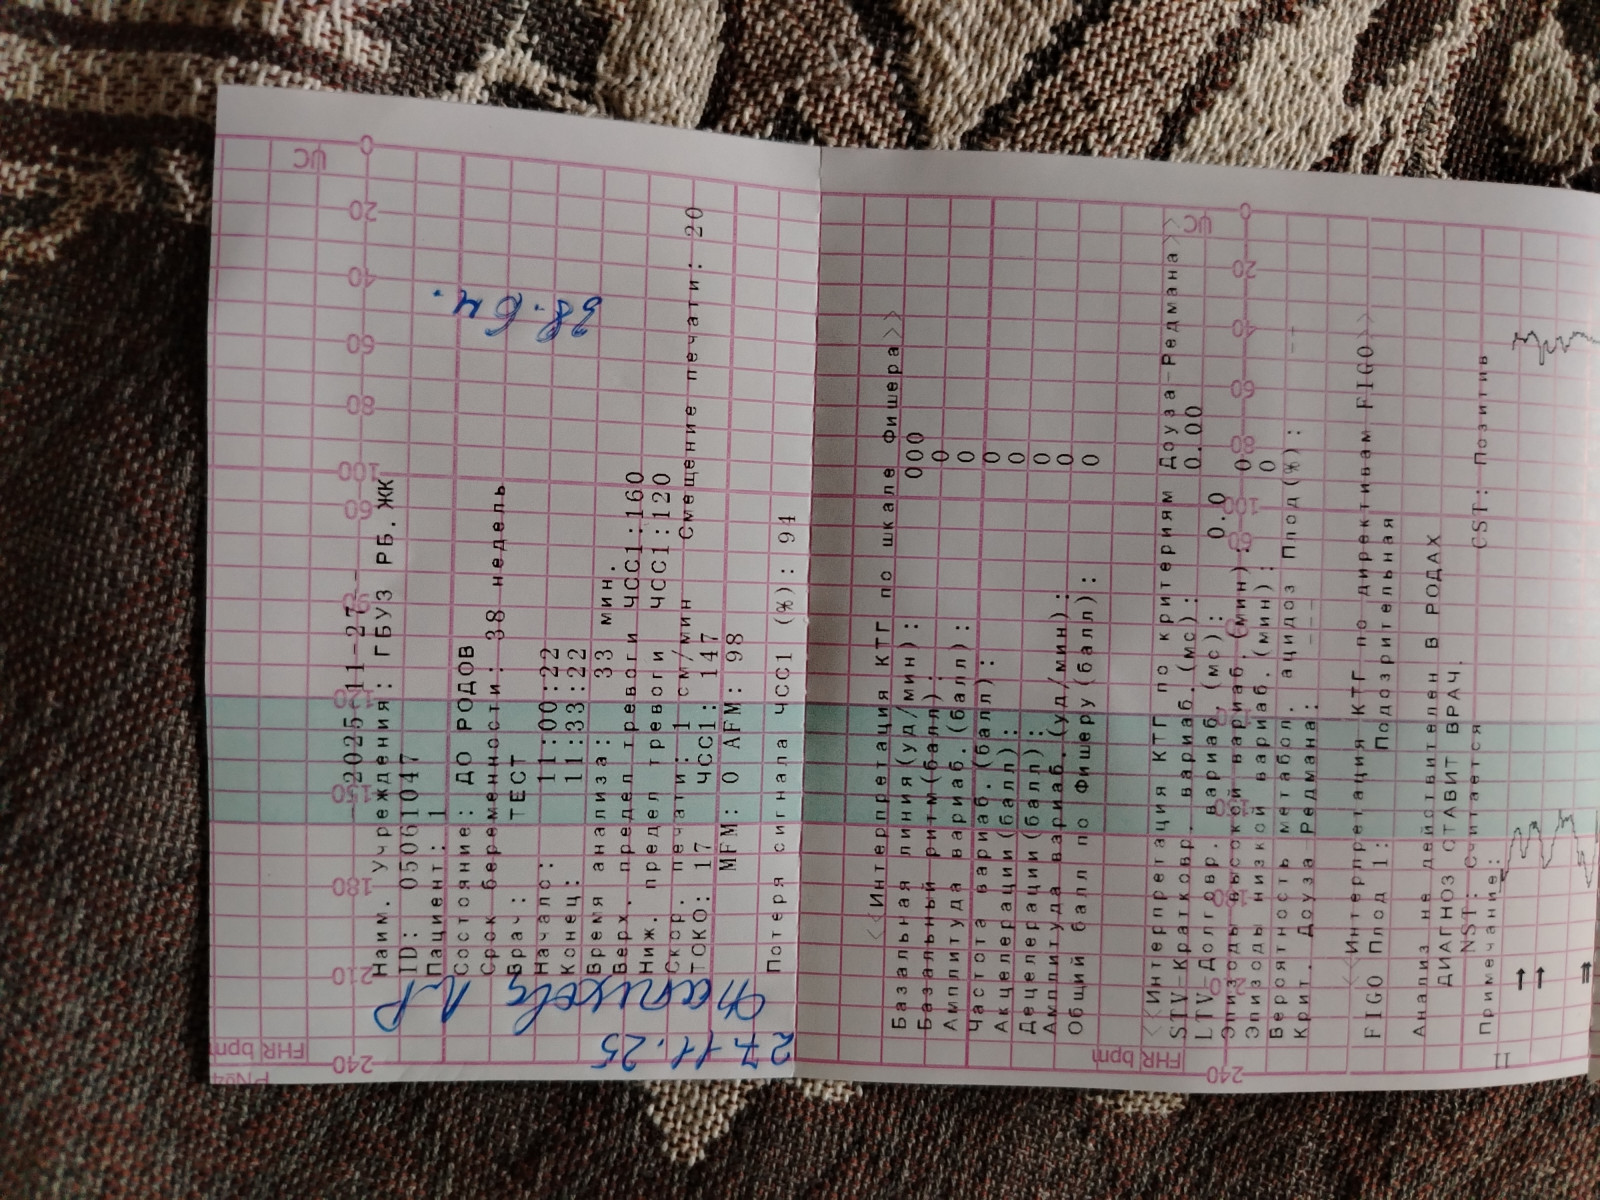 2025-11-27
Наим. Учреждения: ГБУЗ РБ.ЖК
ID: 05061047
Пациент: 1
Состояние: ДО РОДОВ
Срок беременности: 38 недель
Врач: ТЕСТ
Начало: 11:00:22
Конец: 11:33:22
Время анализа: 33 мин.
Верх. предел тревоги ЧСС1:160
Ниж. предел тревоги ЧСС1:120
Скор. печати: 1 см/мин Смещение печати: 20
ТОКО: 17 ЧСС1: 147
МFM: 0 AFM: 98
Потеря сигнала ЧСС1 (%): 94
38.6 н.
27.11.25
<<Интерпретация КТГ по шкале Фишера>>
Базальная линия(уд/мин): 000
Базальный ритм(балл): 0
Амплитуда вариаб.(балл): 0
Частота вариаб.(балл): 0
Акцелерации(балл): 0
Децелерации(балл): 0
Амплитуда вариаб.(уд/мин): 0
Общий балл по Фишеру(балл): 0
<<Интерпретация КТГ по критериям Доуза-Редмана>>
STV-Кратковр. вариаб.(мс): 0.00
LTV-Долговр. вариаб.(мс): 0.0
Эпизоды высокой вариаб.(мин): 0
Эпизоды низкой вариаб.(мин): 0
Вероятность метабол. ацидоз Плод(%): --
Крит. Доуза-Редмана: ---
<<Интерпретация КТГ по директивам FIGO>>
FIGO Плод 1: Подозрительная
Анализ не действителен В РОДАХ
ДИАГНОЗ СТАВИТ ВРАЧ.
NST: Считается CST: Позитив
Примечание:
11
240 210 180 150 120 90 60
100 80 60 40 20 0
FHR bpm
UC
240 210 180 150 120 90 60
100 80 60 40 20 0
FHR bpm
UC